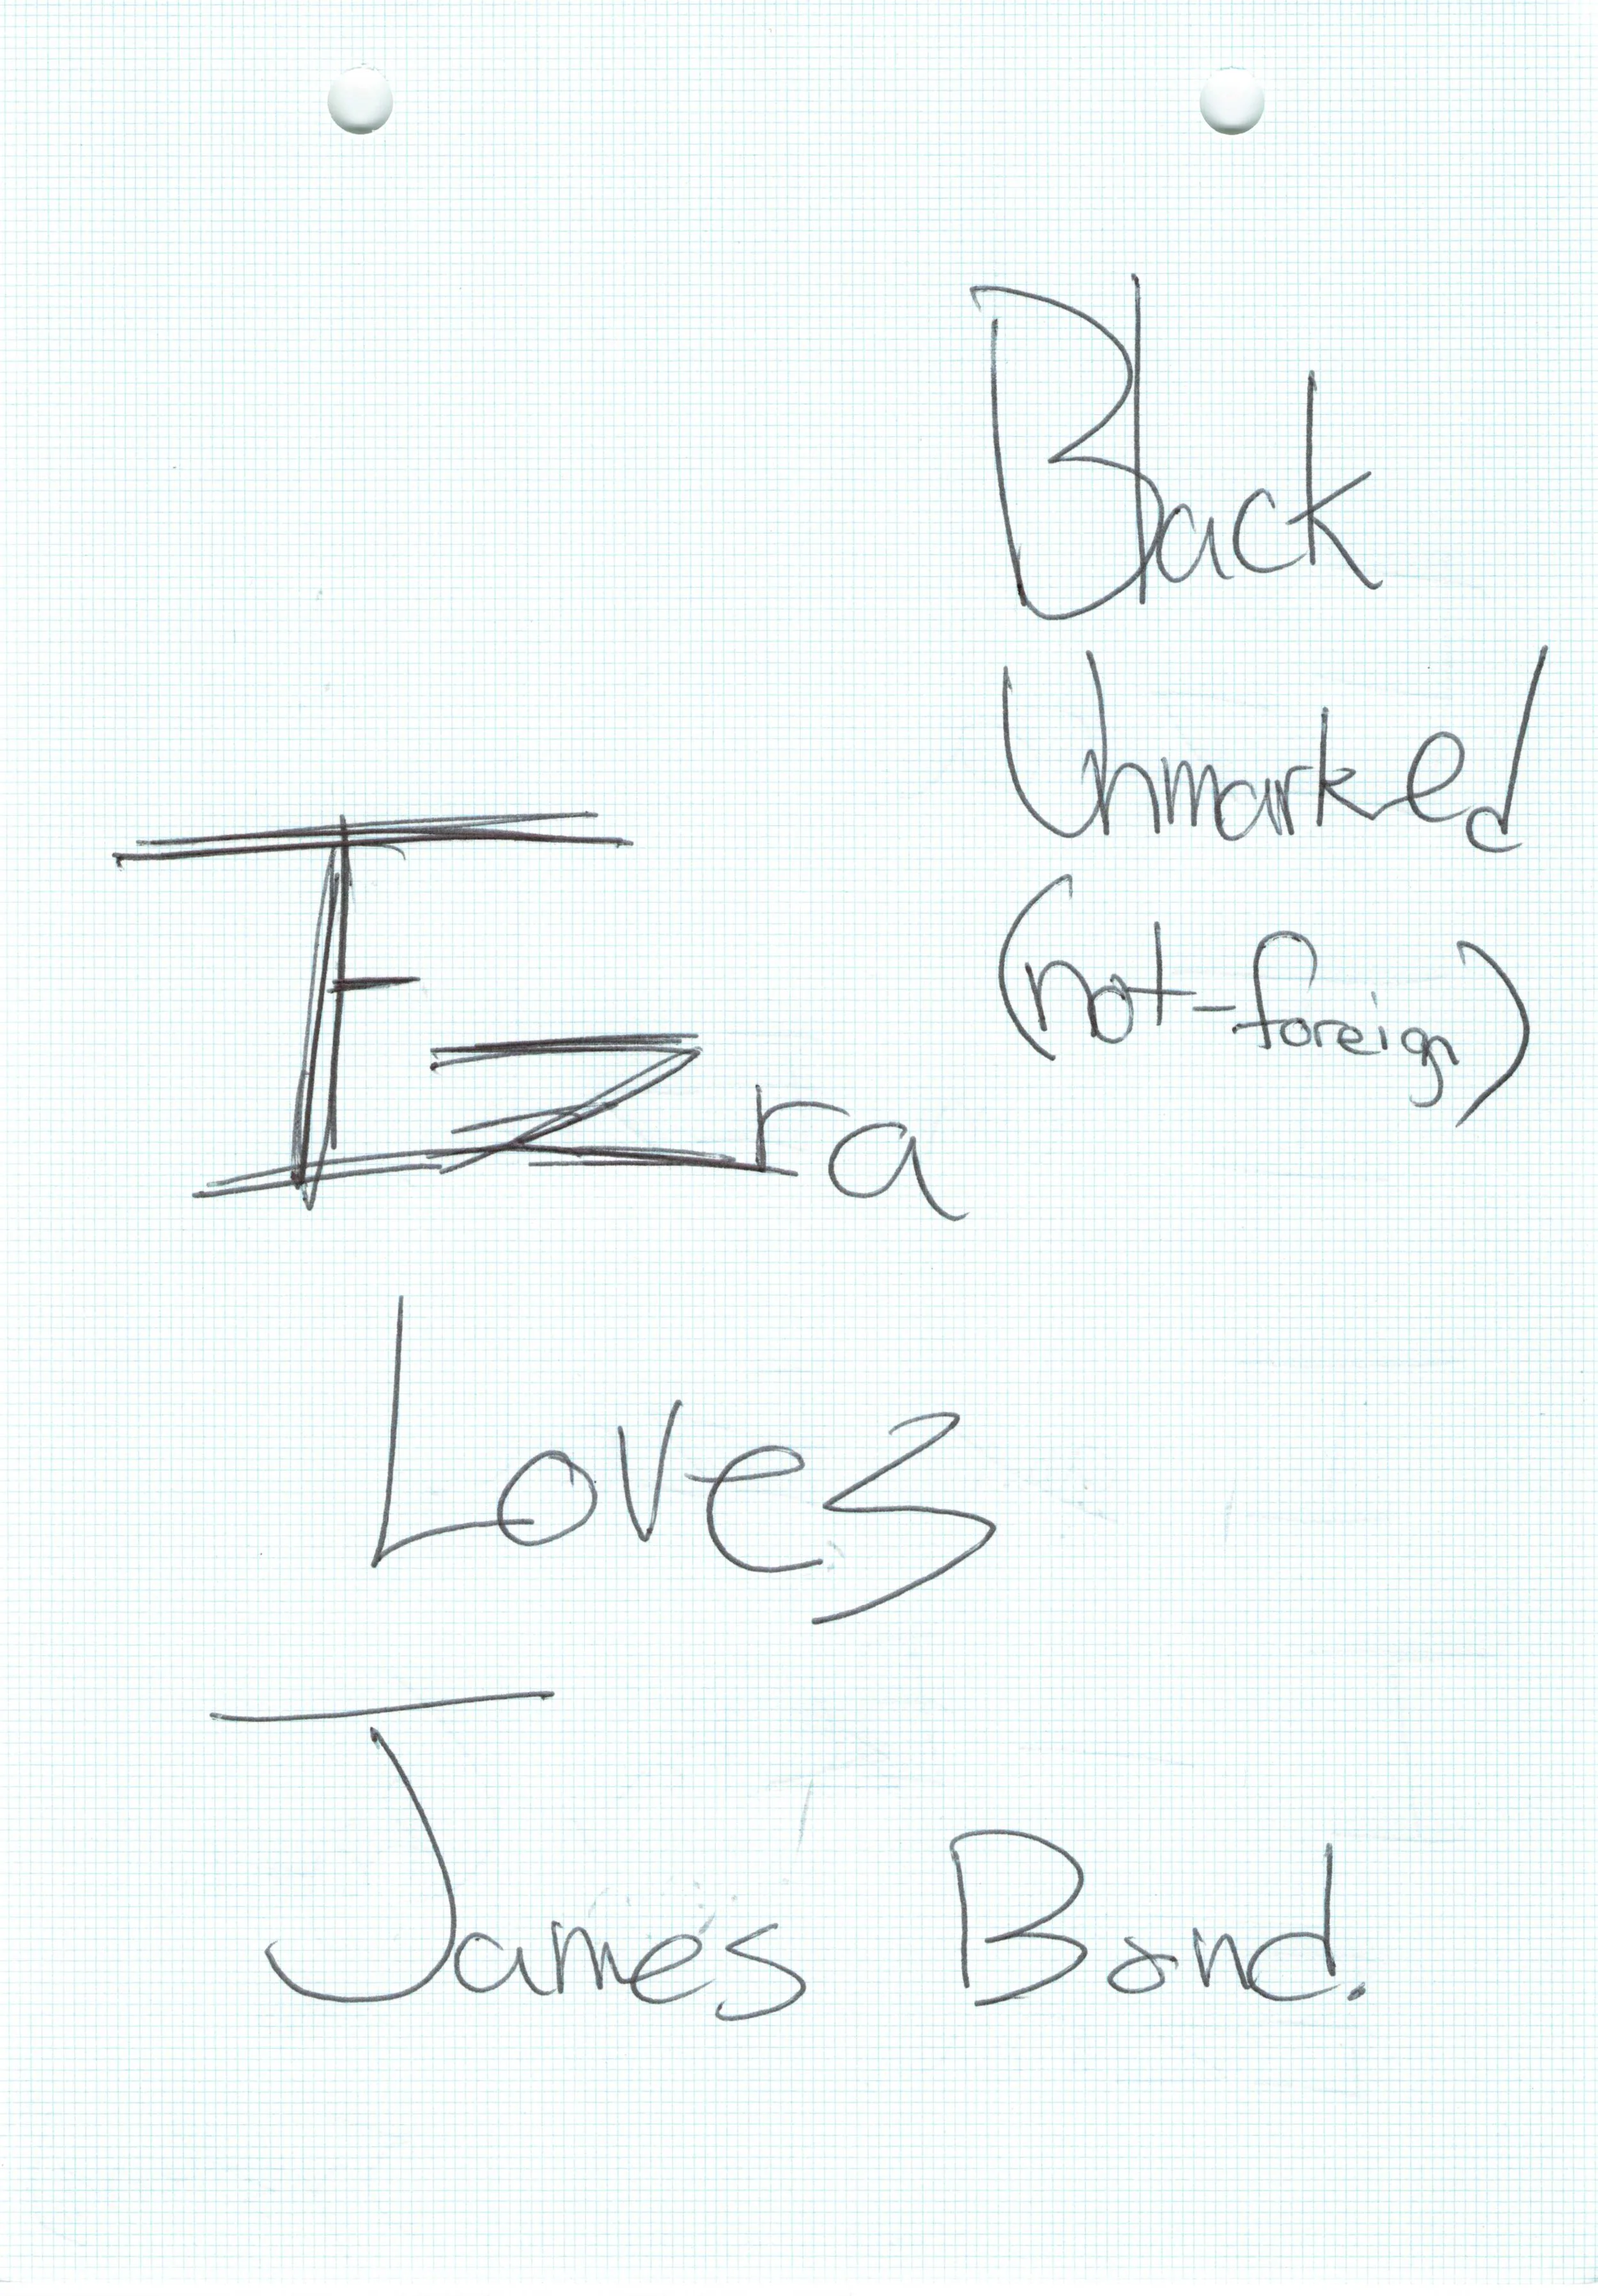 Black
Unmarked
(not-foreign)
Ezra
Loves
James Bond.